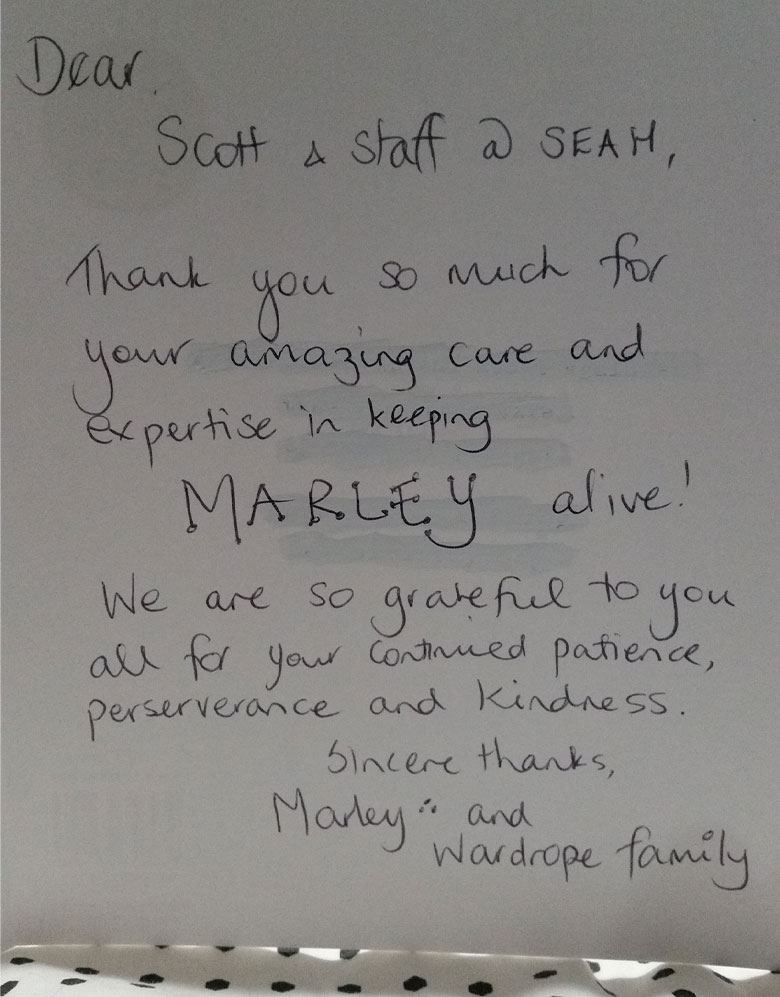 Dear.
Scott & Staff @ SEAH,
Thank you so much for
your amazing care and
expertise in keeping
MARLEY alive!
We are so grateful to you
all for your continued patience,
perserverance and kindness.
Sincere thanks,
Marley and
Wardrope family